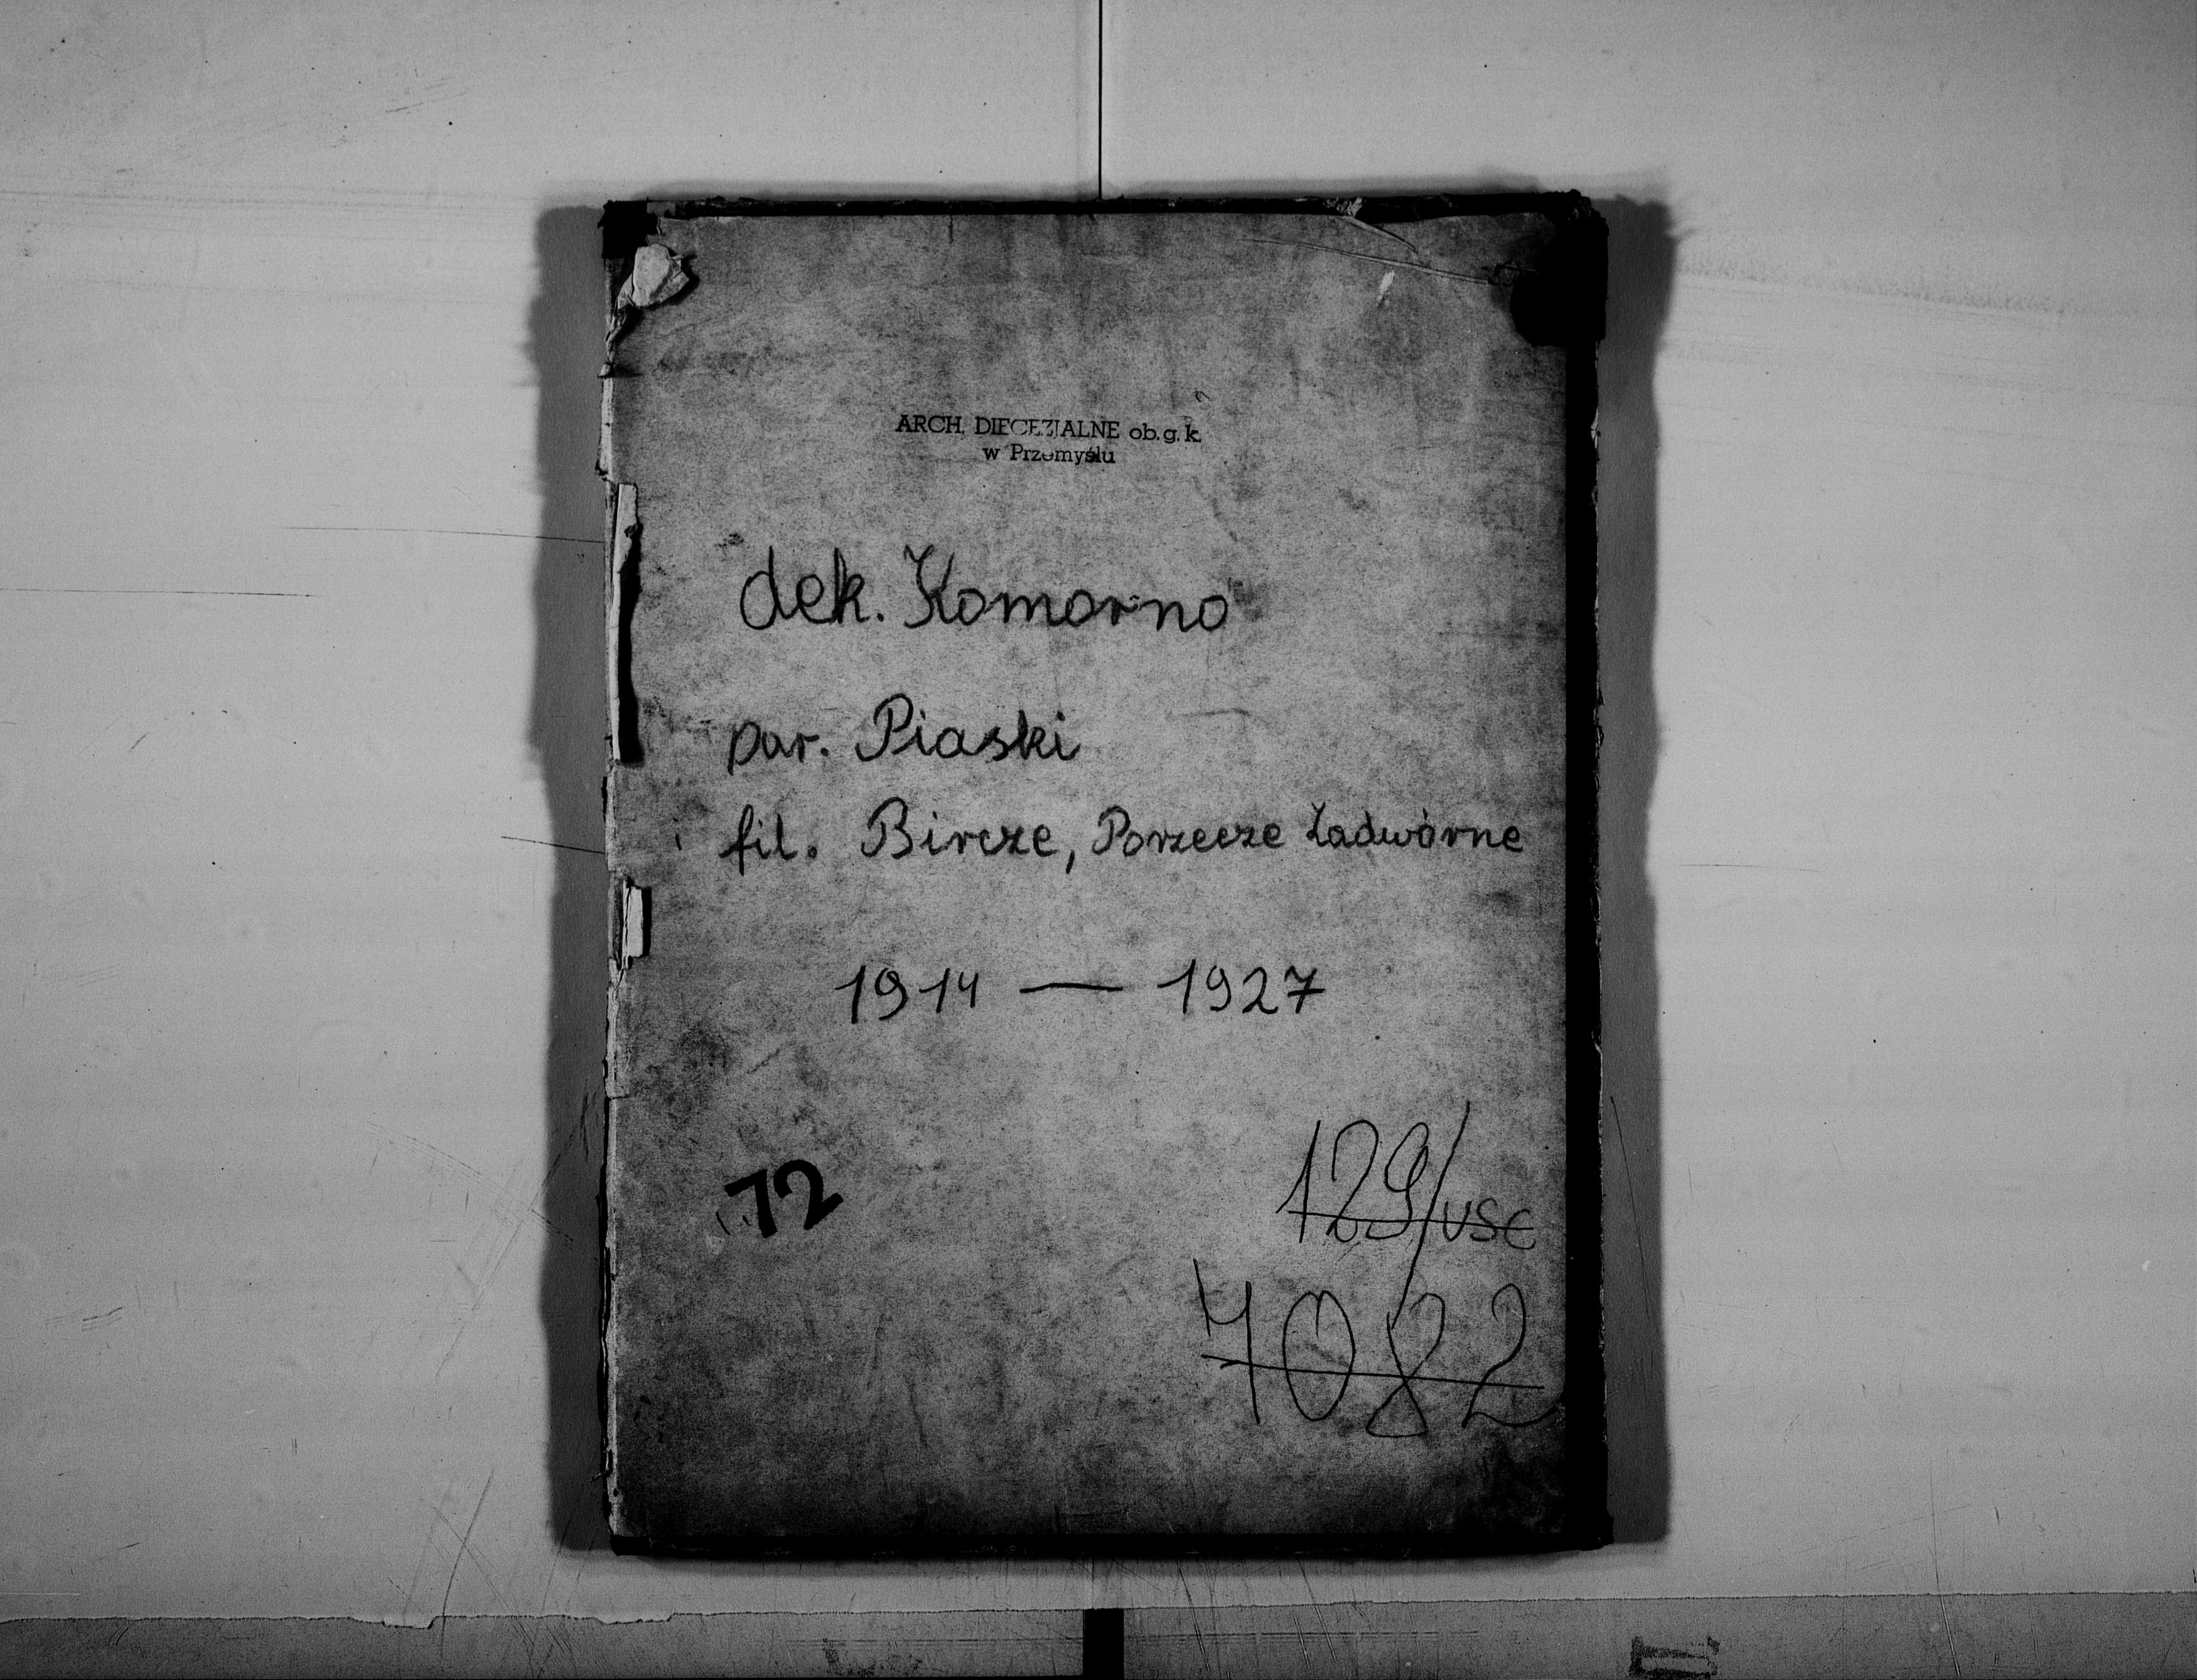 ARCH. DIECEZJALNE ob. g. k.
w Przemyślu
dek. Komarno
par. Piaski
i fil. Bircze, Porzecze Zadwórne
1914 — 1927
72
129/USC
4082